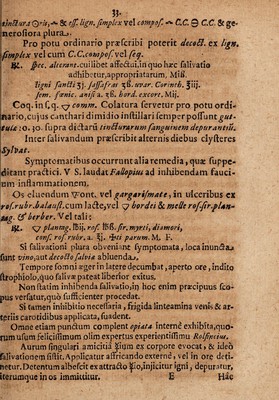 33.
tinctura ☉ris, & ess. lign. simplex vel compos. C.C ☉ C.C & ge-
nerosiora plura.
Pro potu ordinario præscribi poterit decoct. ex lign.
simplex vel cum C.C. compos. vel seq.
℞. spec. alterant. cuilibet affectui, in quo hæc salivatio
adhibetur, appropriatarum, Miß.
ligni sancti ℥j. sassafras rad. scor. Corinth. ℥iij.
sem. fœnic. anisi rad. bord. excort. Mij.
Coq. in f.q. ▽ comm. Colatura servetur pro potu ordi-
nario, cujus canthari dimidio instillari semper possunt gut-
tula: 0. 30. supra dictarũ tincturarum sanguinem depurantiũ.
Inter salivandum præscribitur alternis diebus clysteres
Sylvat.
Symptomaticis occurrunt alia remedia, quæ suppe-
ditant practici. V S. laudat Fallopius ad inhibendam fauci-
um inflammationem.
Os eluendum ▽ont. vel gargarismate, in ulceribus ex
ros. rubr. balaust. cum lacte, vel ▽ bordei & melle ros. sir. plan-
tag. & berber. Vel tali:
℞. ▽ plantag. lbij. ros. lbß. sir. myrti, diamori,
cons. ros. rubr. a. ℥j. ♀ti parum. M. F.
Si salivationi plura obveniant symptomata, loca inuncta
sunt vino, aut decocto salvia abluenda.
Tempore somni æger in latere decumbat, aperto ore, indito
strophiolo, quo salivæ pateat liberior exitus.
Non statim inhibenda salivatio, in hoc enim præcipuus sco-
pus versatur, quò sufficienter procedat.
Si tamen inhibitio necessaria, frigida linteamina venis & ar-
teriis carotidibus applicata, suadent.
Omne etiam punctum complent opiata internè exhibita, quo-
rum usum felicissimum olim expertus experientissimus Rolfincius.
Aurum singulari amicitiâ ☿ium ex corpore evocat, & ideò
salivationem sistit. Applicatur affricando externè, vel in ore deti-
netur. Detentum albescit ex attracto ☿io, injicitur igni, depuratur,
iterumque in os immittitur.
E
Hâc